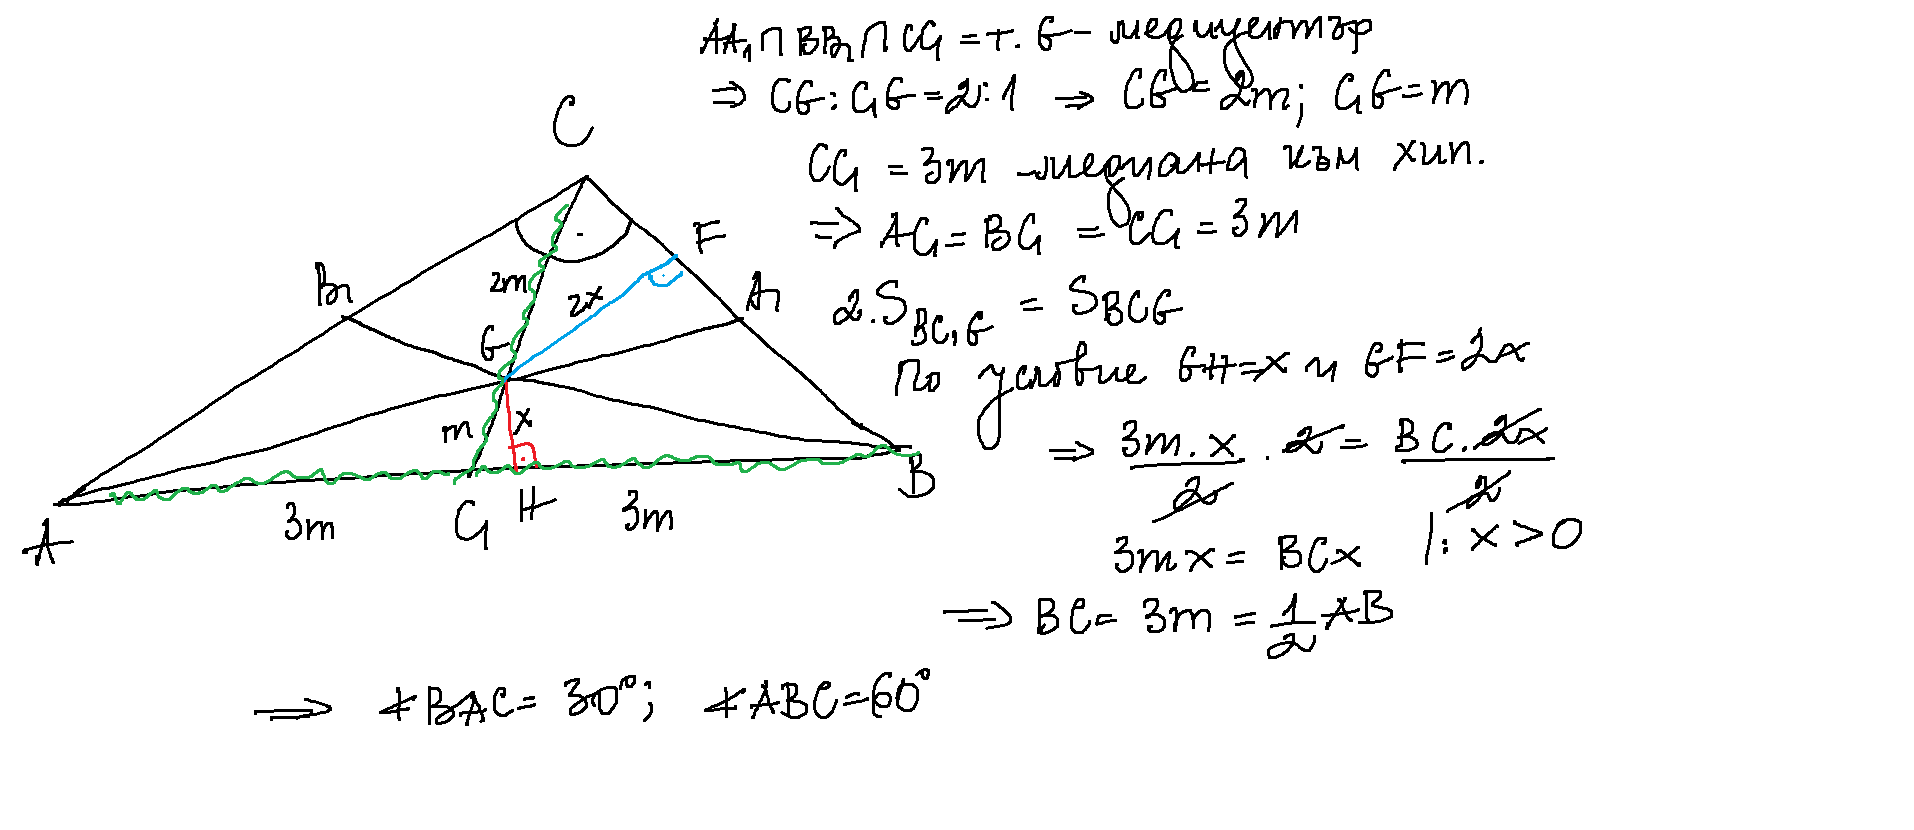 AA₁ ∩ BB₁ ∩ CC₁ = т. G - медицентър
⇒ CG : C₁G = 2:1 ⇒ CG = 2m; C₁G = m
CC₁ = 3m - медиана към хип.
⇒ AC₁ = BC₁ = CC₁ = 3m
2.S_BC₁G = S_BCG
По условие GH=x и GF=2x
⇒ 3m.x/2 . 2 = BC.2x/2
3mx = BCx |: x > 0
⇒ BC = 3m = 1/2 AB
⇒ ∢BAC = 30°; ∢ABC=60°
C
F
B₁
2m
2x
A₁
G
m
x
A
3m
C₁
H
3m
B